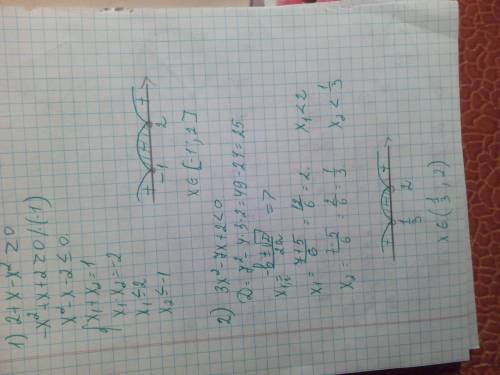 1) 2+x-x² ≥0
-x²+x+2≥0 /·(-1)
x²-x-2≤0.
{ x₁+x₂=1
x₁x₂=-2
x₁=2
x₂=-1
+ - +
-1 2
x∈[-1; 2]
2) 3x²-7x+2<0.
D=7²-4·3·2=49-24=25.
x₁,₂= -b±√D / 2a =>
x₁= 7+5 / 6 = 12 / 6 =2. x₁<2
x₂= 7-5 / 6 = 2 / 6 = 1 / 3 x₂< 1 / 3
+ - +
1 / 3 2
x∈( 1 / 3 ; 2)